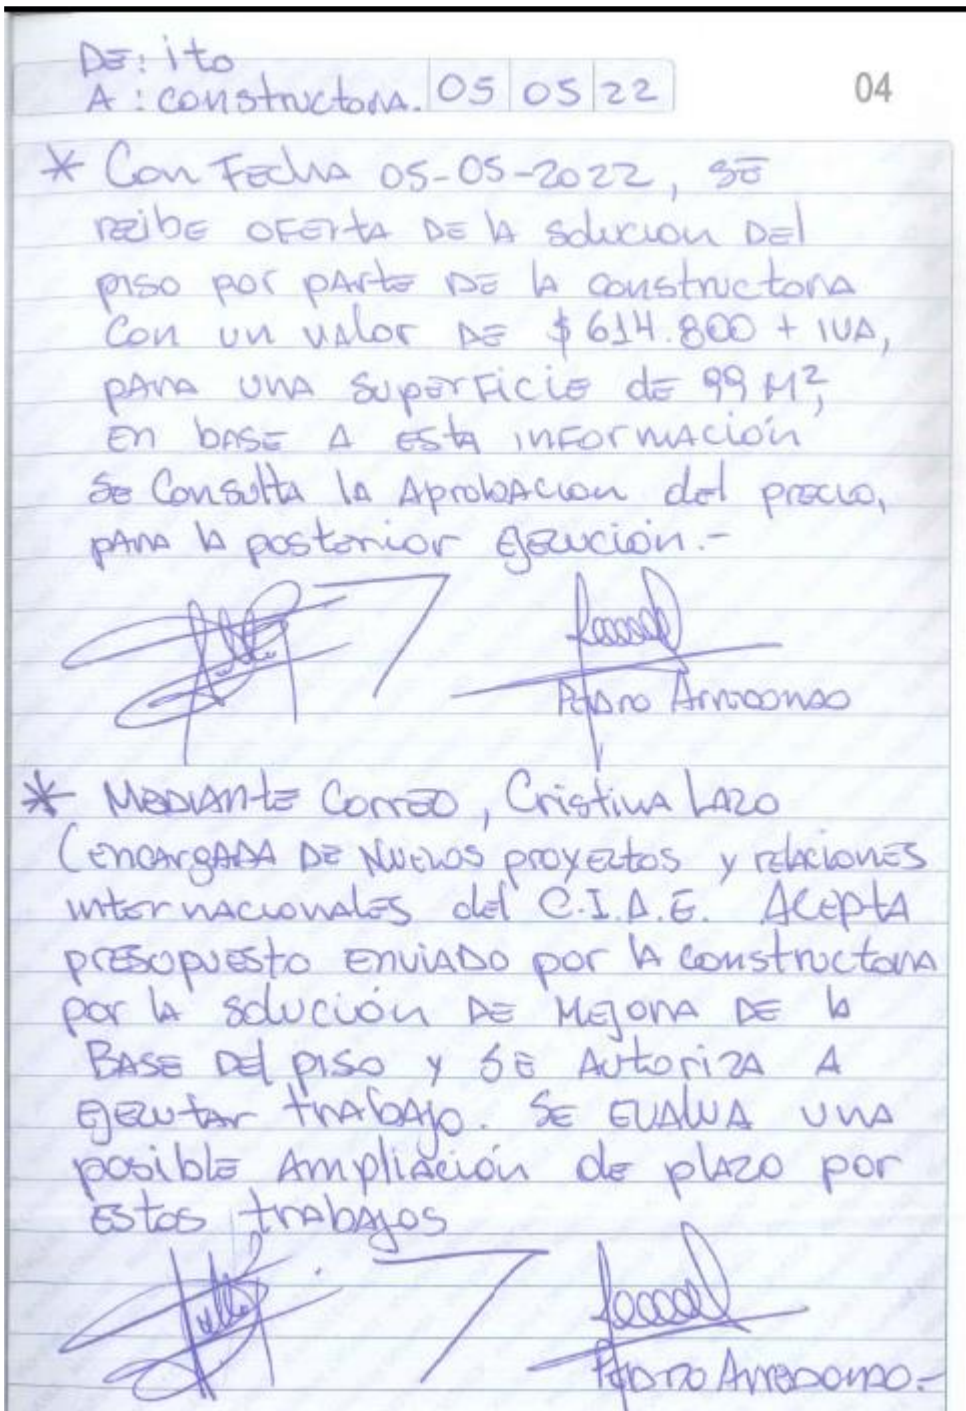 DE: ito
A: constructora. 05 05 22
04
* Con Fecha 05-05-2022, SE
recibe OFErta DE la solucion DEl
piso por partE DE la constructora
Con un valor DE $614.800 + IVA,
para una superficie de 99 M²,
En base A esta informacion
se Consulta la Aprobacion del precio,
para la posterior Ejecución.-
Pedro Arredondo
* Mediante Correo, Cristina Lazo
(encargada DE Nuevos proyectos y relaciones
internacionales del C.I.A.E. Acepta
presopuesto enviado por la constructora
por la solución DE Mejora DE la
Base Del piso y SE Autoriza A
Ejecutar trabajo. Se Evalua una
posible Ampliación de plazo por
Estos trabajos
Pedro Arredondo.-